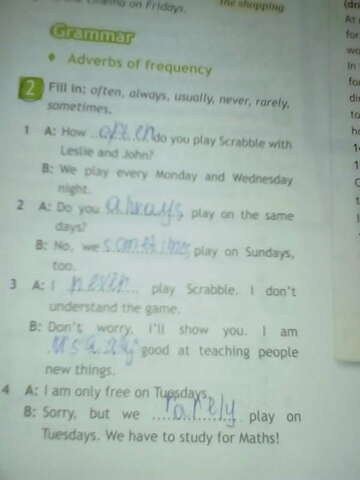 on Fridays.
the shopping
Grammar
• Adverbs of frequency
2 Fill in: often, always, usually, never, rarely,
sometimes.
1 A: How often do you play Scrabble with
Leslie and John?
B: We play every Monday and Wednesday
night.
2 A: Do you always play on the same
days?
B: No, we sometimes play on Sundays,
too.
3 A: I never play Scrabble. I don't
understand the game.
B: Don't worry. I'll show you. I am
usually good at teaching people
new things.
4 A: I am only free on Tuesdays.
B: Sorry, but we rarely play on
Tuesdays. We have to study for Maths!